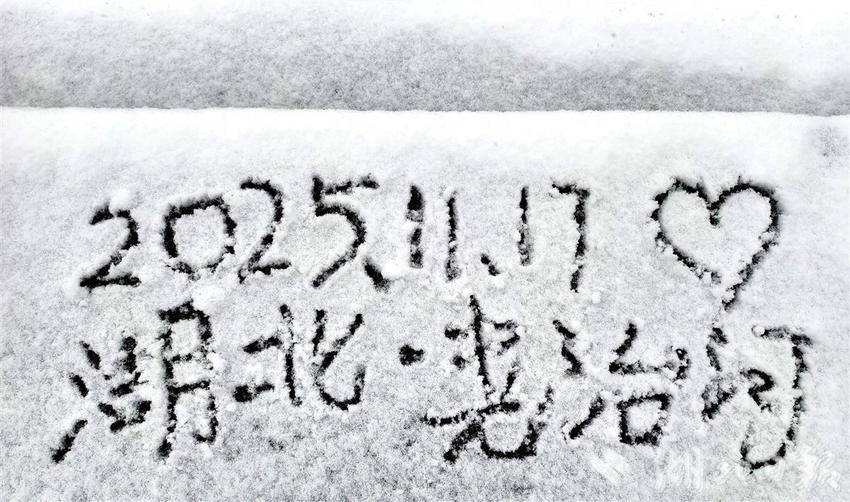 2025.11.17
湖北·老治河
湖北日报